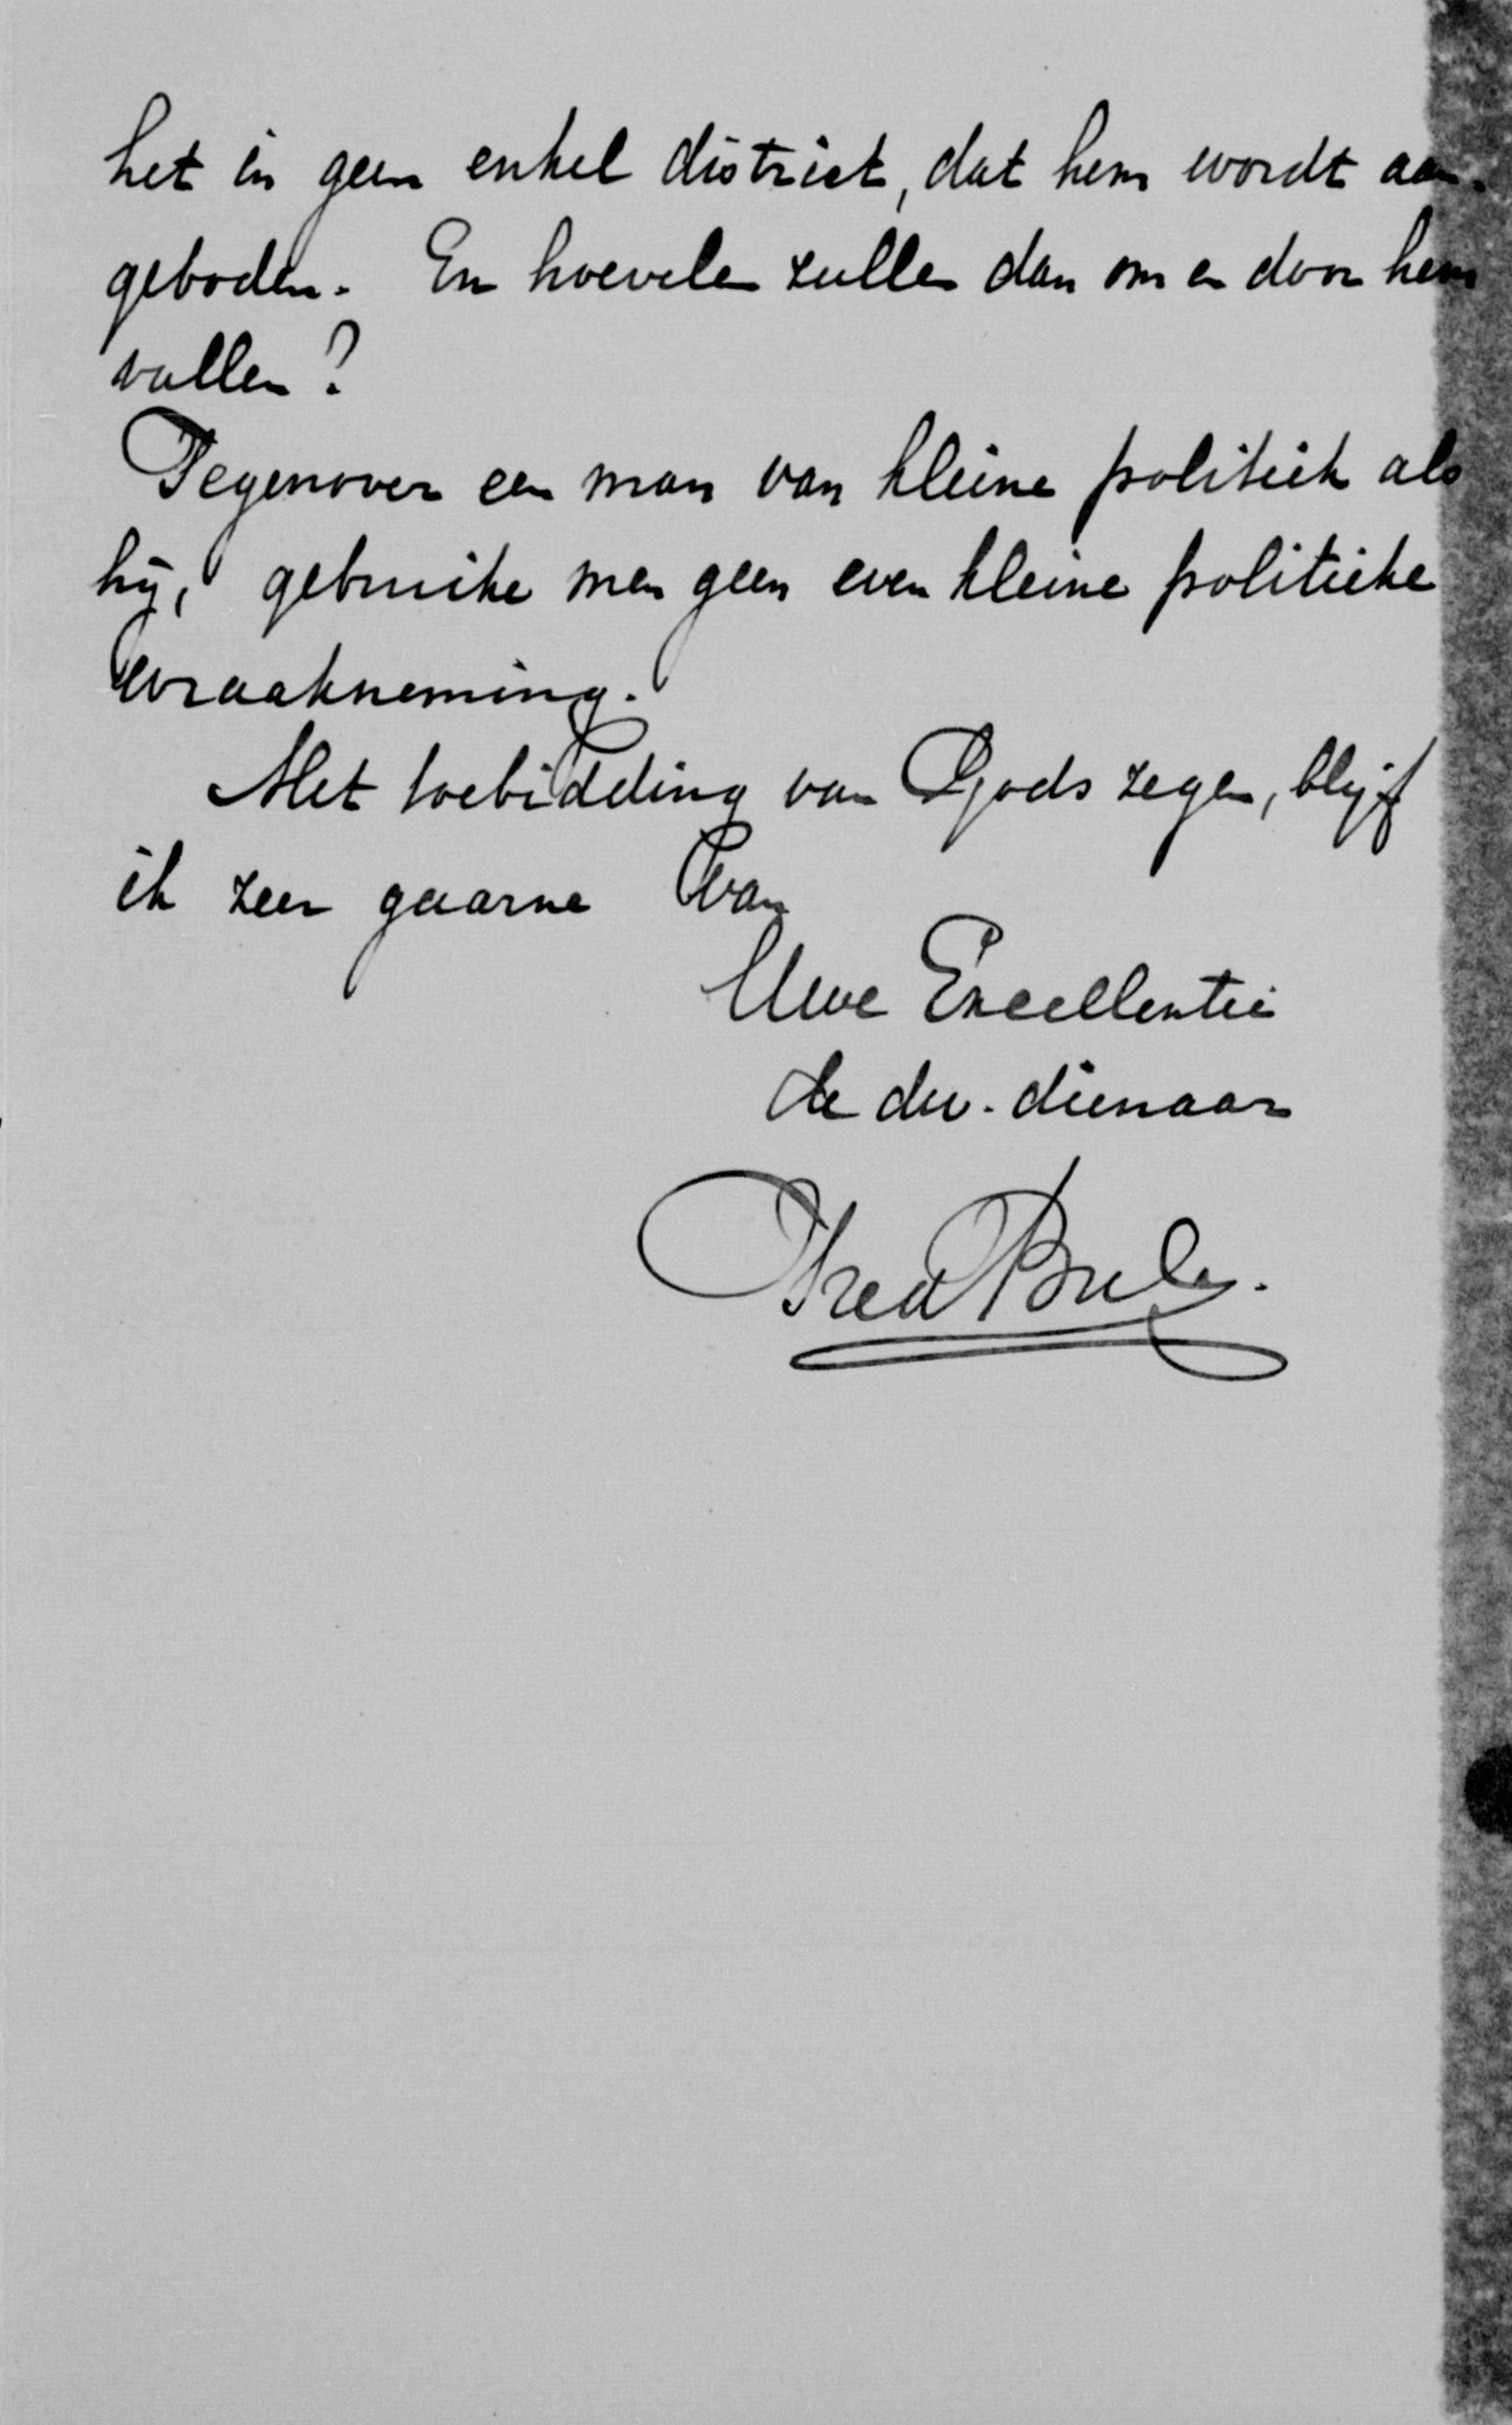 het in geen enkel district, dat hem wordt aan-
geboden. En hoevelen zullen dan om en door hem
vallen?
Tegenover een man van kleine politiek als
hij, gebruike men geen even kleine politieke
wraakneming.
Met toebidding van Gods zegen, blijf
ik zeer gaarne van
Uwe Excellentie
de dw. dienaar